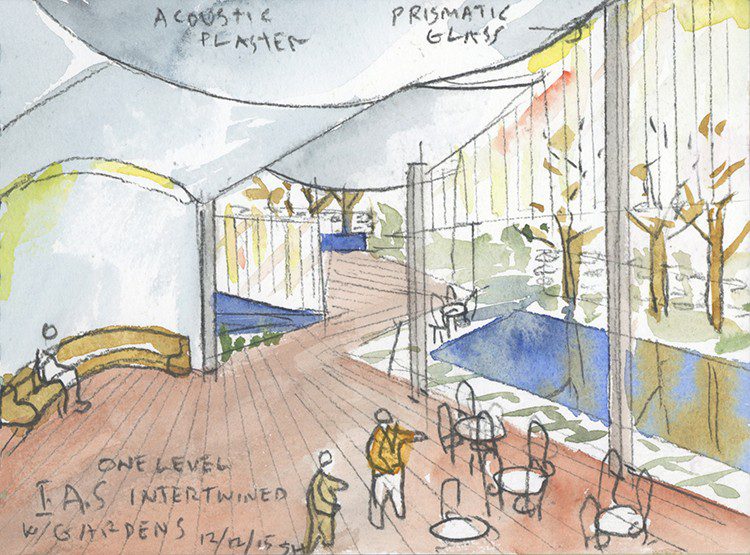 ACOUSTIC
PLASTER
PRISMATIC
GLASS
ONE LEVEL
I.A.S INTERTWINED
W/GARDENS 12/12/15 SH